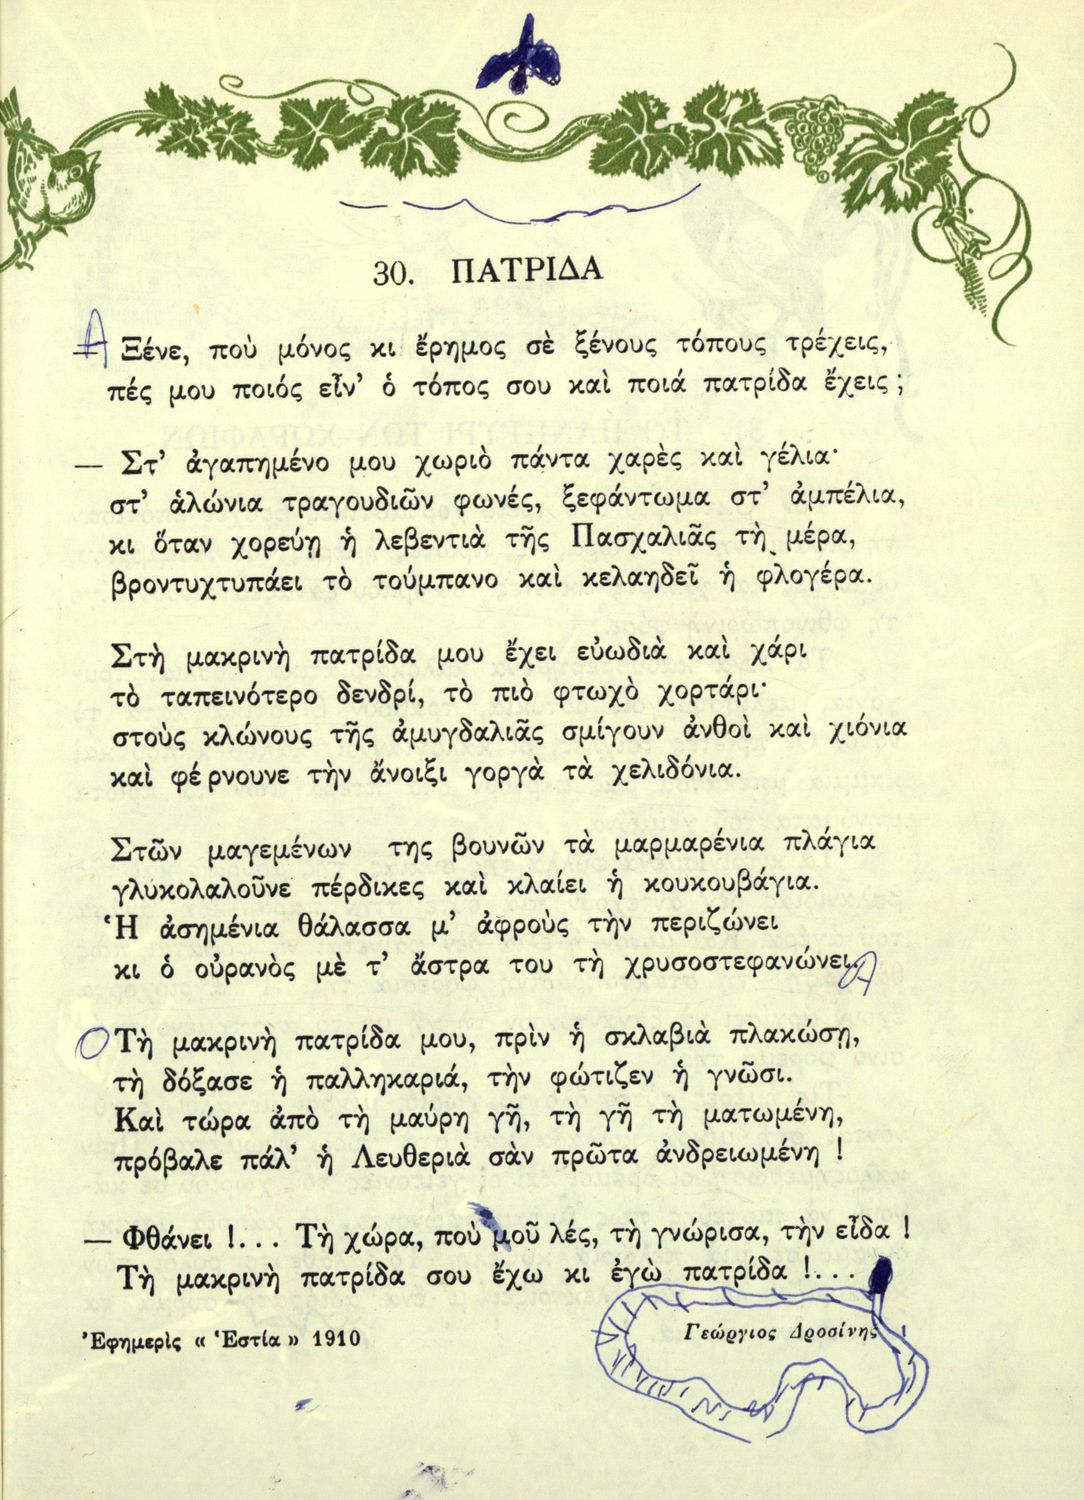 30. ΠΑΤΡΙΔΑ
— Ξένε, ποὺ μόνος κι ἔρημος σὲ ξένους τόπους τρέχεις,
πές μου ποιός εἶν' ὁ τόπος σου καὶ ποιά πατρίδα ἔχεις ;
— Στ' ἀγαπημένο μου χωριὸ πάντα χαρὲς καὶ γέλια·
στ' ἁλώνια τραγουδιῶν φωνές, ξεφάντωμα στ' ἀμπέλια,
κι ὅταν χορεύῃ ἡ λεβεντιὰ τῆς Πασχαλιᾶς τὴ μέρα,
βροντυχτυπάει τὸ τούμπανο καὶ κελαηδεῖ ἡ φλογέρα.
Στὴ μακρινὴ πατρίδα μου ἔχει εὐωδιὰ καὶ χάρι
τὸ ταπεινότερο δενδρί, τὸ πιὸ φτωχὸ χορτάρι·
στοὺς κλώνους τῆς ἀμυγδαλιᾶς σμίγουν ἀνθοὶ καὶ χιόνια
καὶ φέρνουνε τὴν ἄνοιξι γοργὰ τὰ χελιδόνια.
Στῶν μαγεμένων της βουνῶν τὰ μαρμαρένια πλάγια
γλυκολαλοῦνε πέρδικες καὶ κλαίει ἡ κουκουβάγια.
Ἡ ἀσημένια θάλασσα μ' ἀφροὺς τὴν περιζώνει
κι ὁ οὐρανὸς μὲ τ' ἄστρα του τὴ χρυσοστεφανώνει.
Τὴ μακρινὴ πατρίδα μου, πρὶν ἡ σκλαβιὰ πλακώσῃ,
τὴ δόξασε ἡ παλληκαριά, τὴν φώτιζεν ἡ γνῶσι.
Καὶ τώρα ἀπὸ τὴ μαύρη γῆ, τὴ γῆ τὴ ματωμένη,
πρόβαλε πάλ' ἡ Λευθεριὰ σὰν πρῶτα ἀνδρειωμένη !
— Φθάνει !... Τὴ χώρα, ποὺ μοῦ λές, τὴ γνώρισα, τὴν εἶδα !
Τὴ μακρινὴ πατρίδα σου ἔχω κι ἐγὼ πατρίδα !...
Ἐφημερὶς « Ἑστία » 1910
Γεώργιος Δροσίνης